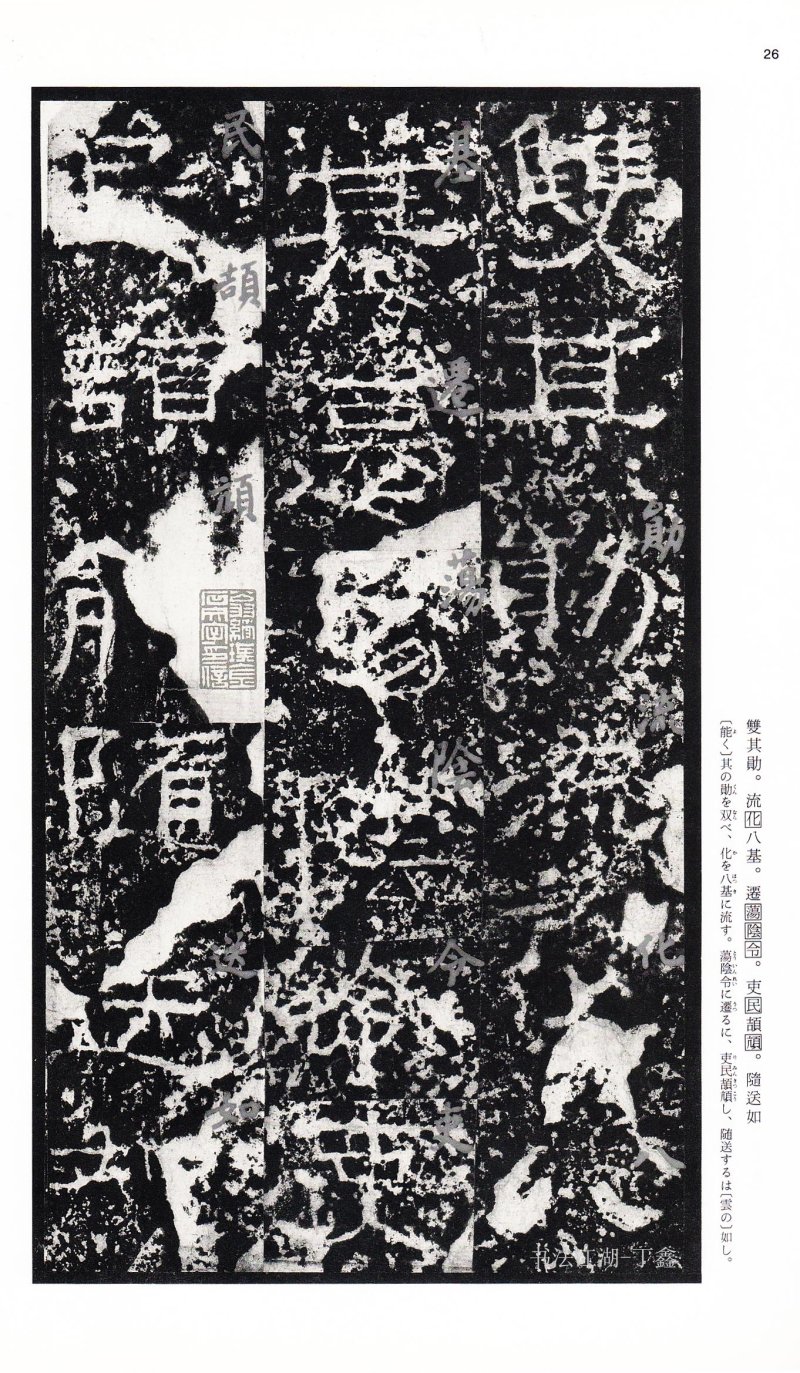 26
雙其勛流化八
基遷蕩陰令吏
民頡頏隨送如
勛流化八
基遷蕩陰令吏
民頡頏送如
雙其勛。流化八基。遷蕩陰令。吏民頡頏。隨送如
〔能く〕其の勛を双べ、化を八基に流す。蕩陰令に遷るに、吏民頡頏し、随送するは〔雲の〕如し。
书法江湖-丁鑫